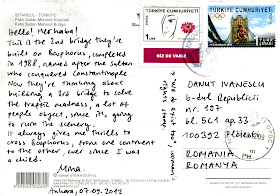 İSTANBUL - TÜRKİYE
Fatih Sultan Mehmet Köprüsü
Fatih Sultan Mehmet Bridge
Hello! Merhaba!
This is the 2nd bridge they've
built on Bosphorus, completed
in 1988, named after the Sultan
who conquered Constantinople.
Now they're thinking about
building a 3rd bridge to solve
the traffic madness, a lot of
people object, since it's going
to ruin the scenery.
It always gives me thrills to
cross Bosphorus, from one continent
to the other, ever since I was
a child.
Mina
Ankara, 07.09.2012
TÜRKİYE CUMHURİYETİ
TÜRKİYE CUMHURİYETİ
BİZ DE VARIZ
DANUT IVANESCU
b-dul Republicii
nr.
bl. 5C1 ap. 33
100392 Ploiesti
ROMANIA
ROMANYA